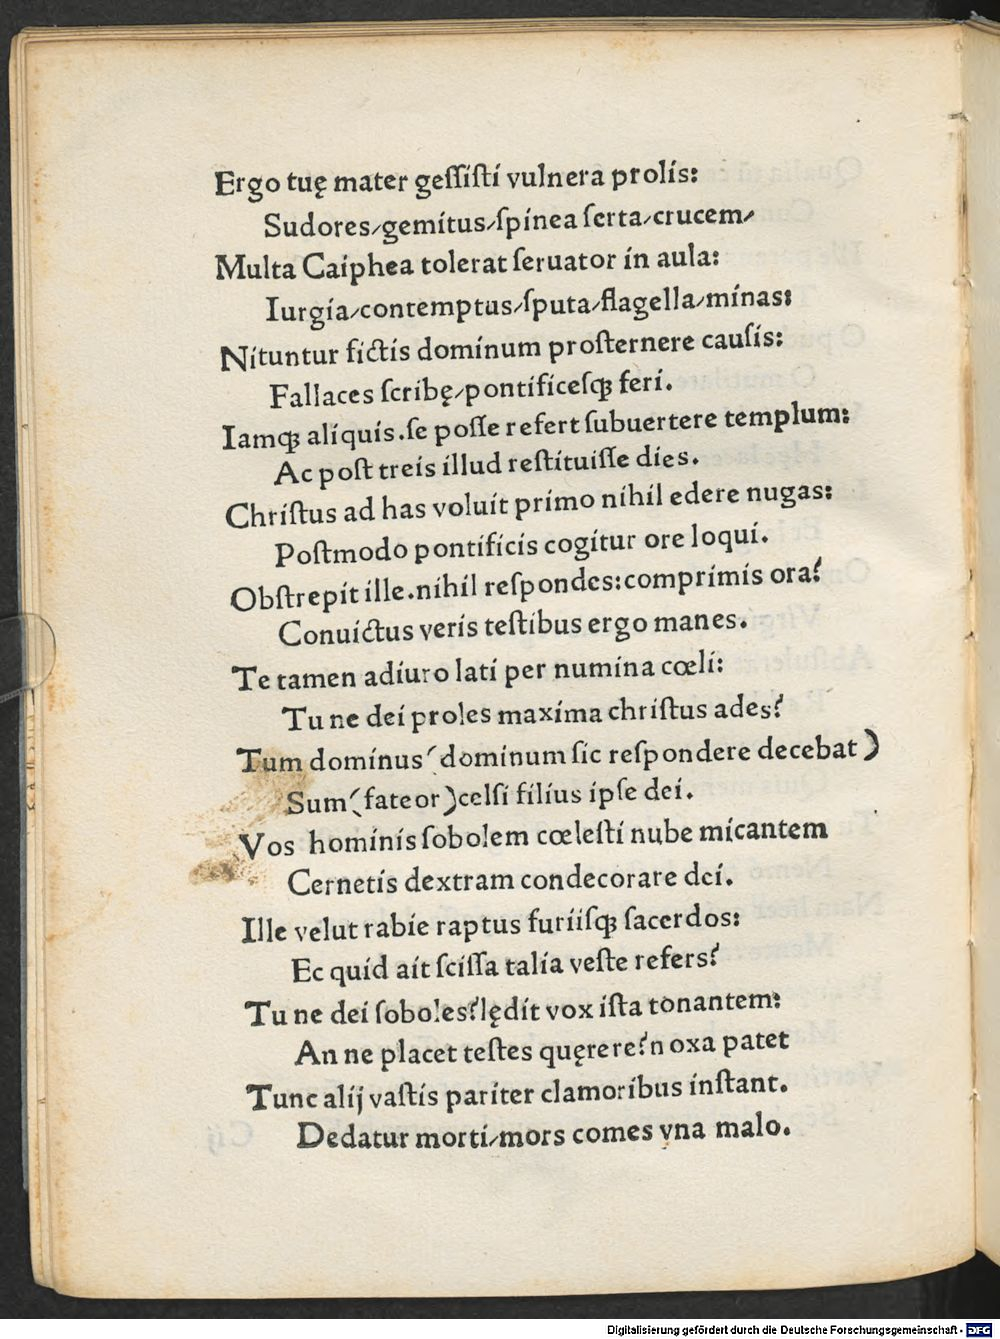 Ergo tuę mater geſſiſti vulnera prolis:
Sudores/gemitus/ſpinea ſerta/crucem/
Multa Caiphea tolerat ſeruator in aula:
Iurgia/contemptus/ſputa/flagella/minas:
Nituntur fictis dominum proſternere cauſis:
Fallaces ſcribę/pontificeſqꝫ feri.
Iamqꝫ aliquis.ſe poſſe refert ſubuertere templum:
Ac poſt treis illud reſtituiſſe dies.
Chriſtus ad has voluit primo nihil edere nugas:
Poſtmodo pontificis cogitur ore loqui.
Obſtrepit ille.nihil reſpondes:comprimis ora?
Conuictus veris teſtibus ergo manes.
Te tamen adiuro lati per numina cœli:
Tu ne dei proles maxima chriſtus ades?
Tum dominus (dominum ſic reſpondere decebat)
Sum (fateor) celſi filius ipſe dei.
Vos hominis ſobolem cœleſti nube micantem
Cernetis dextram condecorare dei.
Ille velut rabie raptus furiiſqꝫ ſacerdos:
Ec quid ait ſciſſa talia veſte refers?
Tu ne dei ſoboles?lędit vox iſta tonantem:
An ne placet teſtes quęrere?noxa patet
Tunc alij vaſtis pariter clamoribus inſtant.
Dedatur morti/mors comes vna malo.
Digitalisierung gefördert durch die Deutsche Forschungsgemeinschaft - DFG